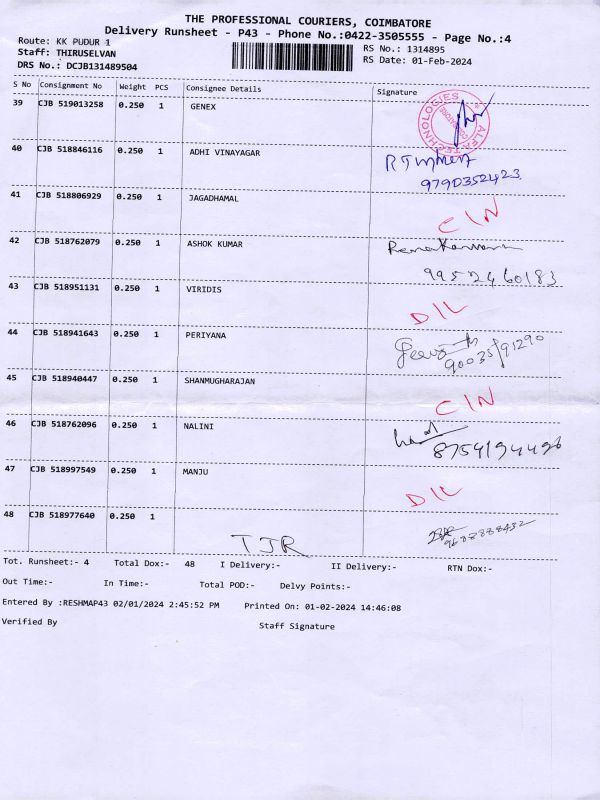 THE PROFESSIONAL COURIERS, COIMBATORE
Delivery Runsheet - P43 - Phone No.:0422-3505555 - Page No.:4
Route: KK PUDUR 1
RS No.: 1314895
Staff: THIRUSELVAN
RS Date: 01-Feb-2024
DRS No.: DCJB131489504
S No Consignment No Weight PCS Consignee Details Signature
39 CJB 519013258 0.250 1 GENEX
TECHNOLOGIES
40 CJB 518846116 0.250 1 ADHI VINAYAGAR
9790352423
41 CJB 518806929 0.250 1 JAGADHAMAL
C/N
42 CJB 518762079 0.250 1 ASHOK KUMAR
9952460183
43 CJB 518951131 0.250 1 VIRIDIS
D/L
44 CJB 518941643 0.250 1 PERIYANA
9003591290
45 CJB 518940447 0.250 1 SHANMUGHARAJAN
C/N
46 CJB 518762096 0.250 1 NALINI
8754194496
47 CJB 518997549 0.250 1 MANJU
D/L
48 CJB 518977640 0.250 1
TJR
Tot. Runsheet:- 4 Total Dox:- 48 I Delivery:- II Delivery:- RTN Dox:-
Out Time:- In Time:- Total POD:- Delvy Points:-
Entered By :RESHMAP43 02/01/2024 2:45:52 PM Printed On: 01-02-2024 14:46:08
Verified By Staff Signature